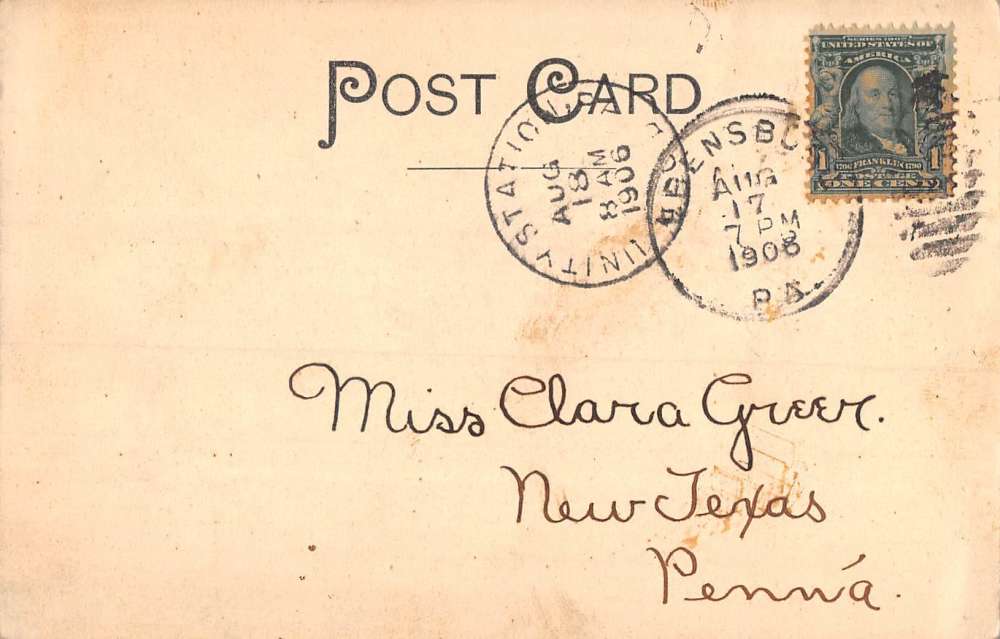 POST CARD
SERIES 1902
UNITED STATES OF
AMERICA
1 1706 FRANKLIN 1790 1
POSTAGE
ONE CENT
UNITY STATION
AUG
18
8 AM
1906
ENSBU
AUG
17
7 PM
1906
PA.
Miss Clara Greer.
New Texas
Penn'a.